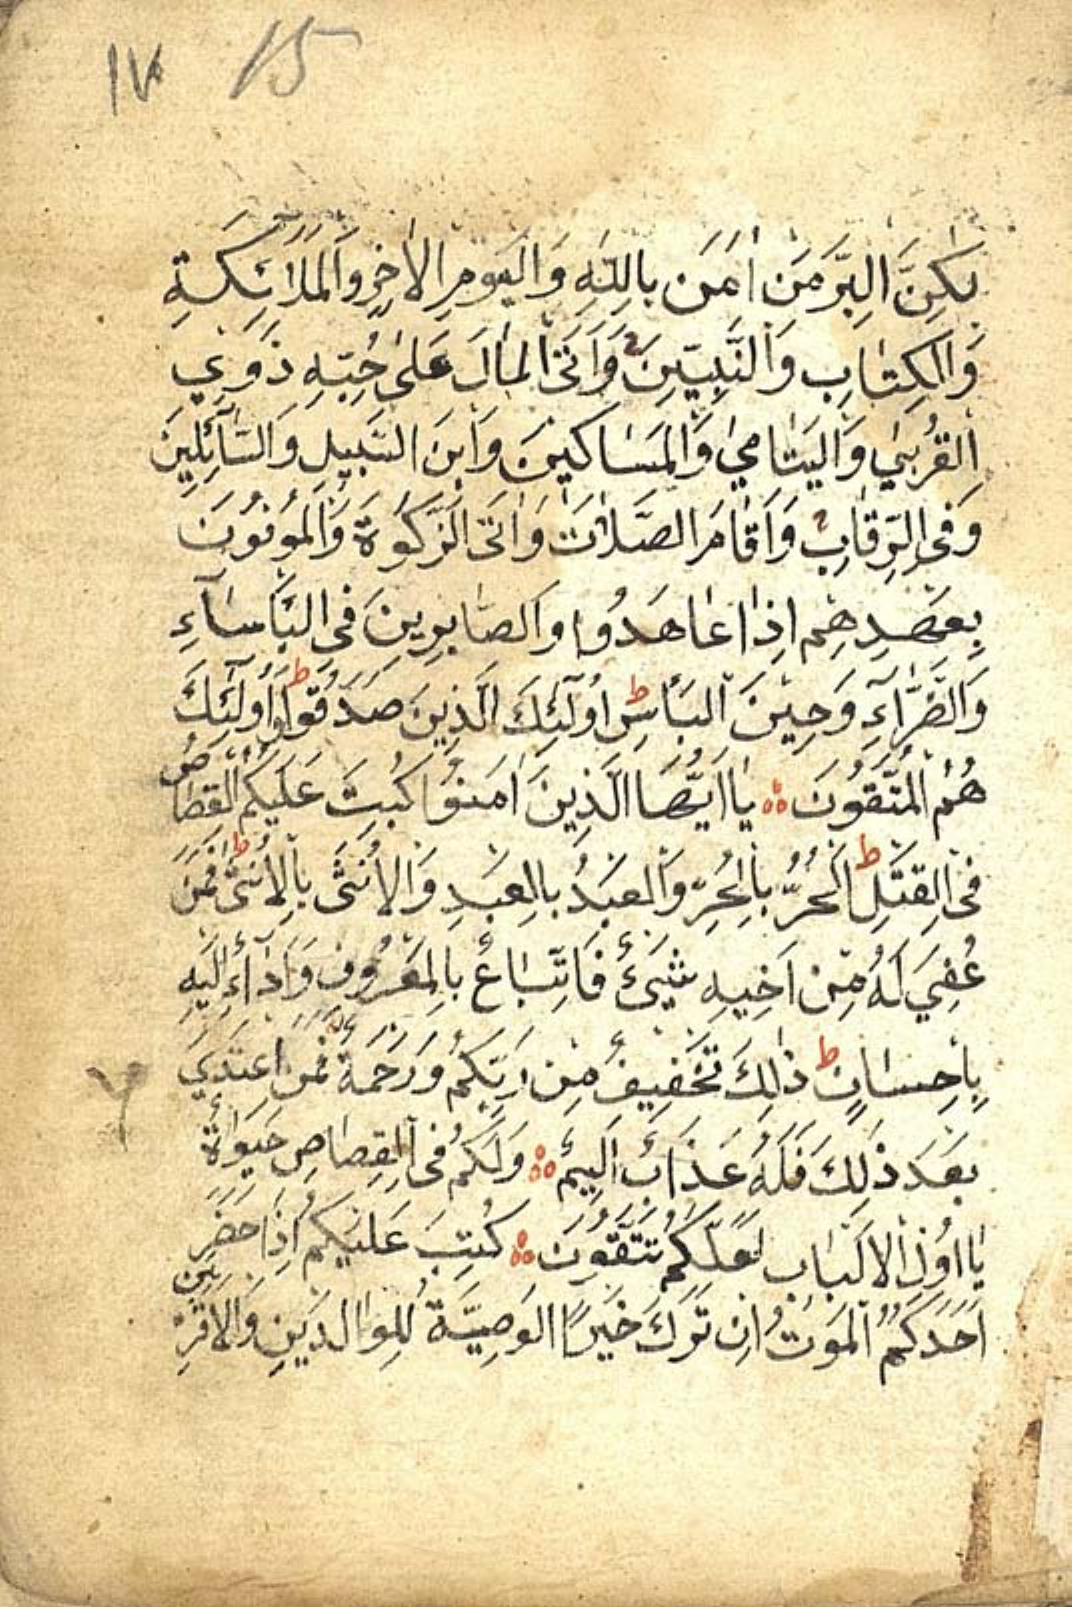 ١٧ 15
لٰكِنَّ الِبرَّ مَنَ اٰمَنَ بِاللّٰهِ وَاليَومِ الاٰخِرِ وَالمَلاَئِكَةِ
وَالكِتٰابِ وَالنَّبِيّٖنَ وَاٰتَى المٰالَ عَلىٰ حُبِّهِ ذَوِي
القُربٰي وَاليَتٰامٰي وَالمَسٰاكينَ وَابنَ السَّبيلِ وَالسّٰآئِلينَ
وَفِى الرِّقٰابِ وَاَقٰامَ الصَّلاٰتَ وَاٰتَى الزَّكوٰةَ وَالمُوفُونَ
بِعَهدِهِم اِذٰا عٰاهَدُوا وَالصّٰابِرينَ فِى البَأسٰآءِ
وَالضَّرّٰآءِ وَحينَ البَأسِ ط اُولٰٓئِكَ الَّذينَ صَدَقُوا ط وَاُولٰٓئِكَ
هُمُ المُتَّقُونَ ۞ يٰا اَيُّهَا الَّذينَ اٰمَنُوا كُتِبَ عَلَيكُمُ القِصٰاصُ
فِى القَتلِ ط الحُرُّ بِالحُرِّ وَالعَبدُ بِالعَبدِ وَالاُنثىٰ بِالاُنثىٰ ط فَمَن
عُفِيَ لَهُ مِن اَخيهِ شَيئٌ فَاتِّبٰاعٌ بِالمَعرُوفِ وَاَدٰآءٌ اِلَيهِ
بِاِحسٰانٍ ط ذٰلِكَ تَخفيفٌ مِن رَبِّكُم وَرَحمَةٌ فَمَنِ اعتَدٰي
بَعدَ ذٰلِكَ فَلَهُ عَذٰابٌ اَليمٌ ۞ وَلَكُم فِى القِصٰاصِ حَيٰوةٌ
يٰا اُولِ الاَلبٰابِ لَعَلَّكُم تَتَّقُونَ ۞ كُتِبَ عَلَيكُم اِذٰا حَضَرَ
اَحَدَكُمُ المَوتُ اِن تَرَكَ خَيرًا الوَصِيَّةُ لِلوٰالِدَينِ وَالاَقرَبينَ